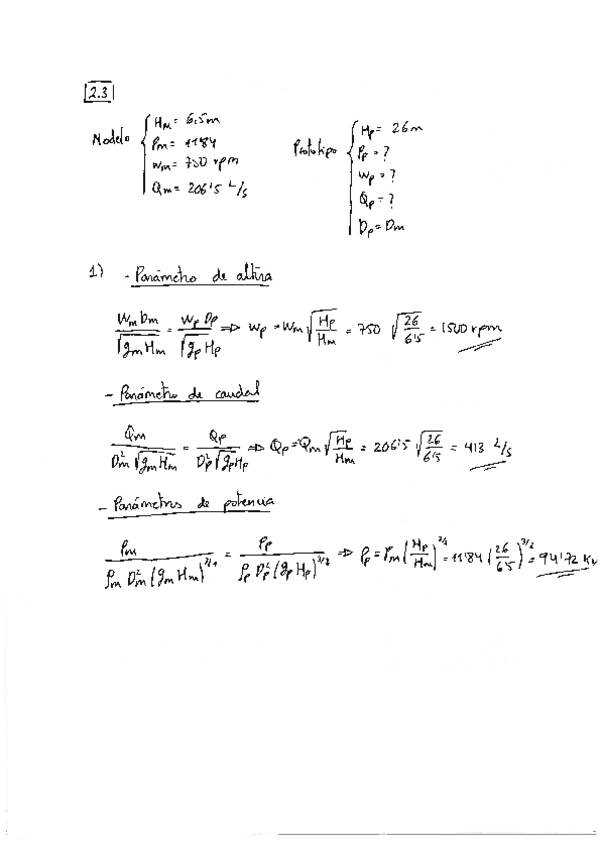 2.3
Modelo { Hm = 6.5m
Pm = 11'84
wm = 750 rpm
Qm = 206'5 L/s
Prototipo { Hp = 26m
Pp = ?
wp = ?
Qp = ?
Dp = Dm
1) - Parámetro de altura
Wm Dm / √(gm Hm) = Wp Dp / √(gp Hp) ⇒ wp = wm √(Hp/Hm) = 750 √(26/6'5) = 1500 rpm
- Parámetro de caudal
Qm / (Dm² √(gm Hm)) = Qp / (Dp² √(gp Hp)) ⇒ Qp = Qm √(Hp/Hm) = 206'5 √(26/6'5) = 413 L/s
- Parámetros de potencia
Pm / (ρm Dm² (gm Hm)^3/2) = Pp / (ρp Dp² (gp Hp)^3/2) ⇒ Pp = Pm (Hp/Hm)^3/2 = 11'84 (26/6'5)^3/2 = 94'72 Kw